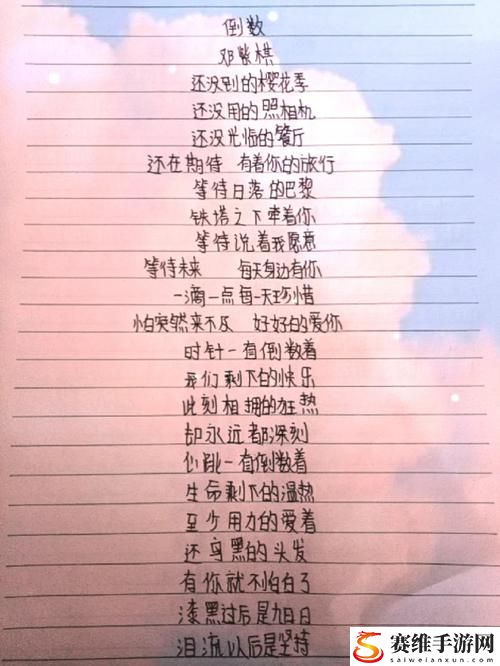 倒数
邓紫棋
还没到的樱花季
还没用的照相机
还没光临的餐厅
还在期待 有着你的旅行
等待日落的巴黎
铁塔之下牵着你
等待说着我愿意
等待未来 每天身边有你
一滴一点每一天珍惜
怕突然来不及 好好的爱你
时针一有倒数着
我们剩下的快乐
此刻相拥的狂热
却永远都深刻
心跳一有倒数着
生命剩下的温热
至少用力的爱着
还乌黑的头发
有你就不怕白了
漆黑过后是九日
泪流以后是坚持
赛维手游网
saiweianxun.com